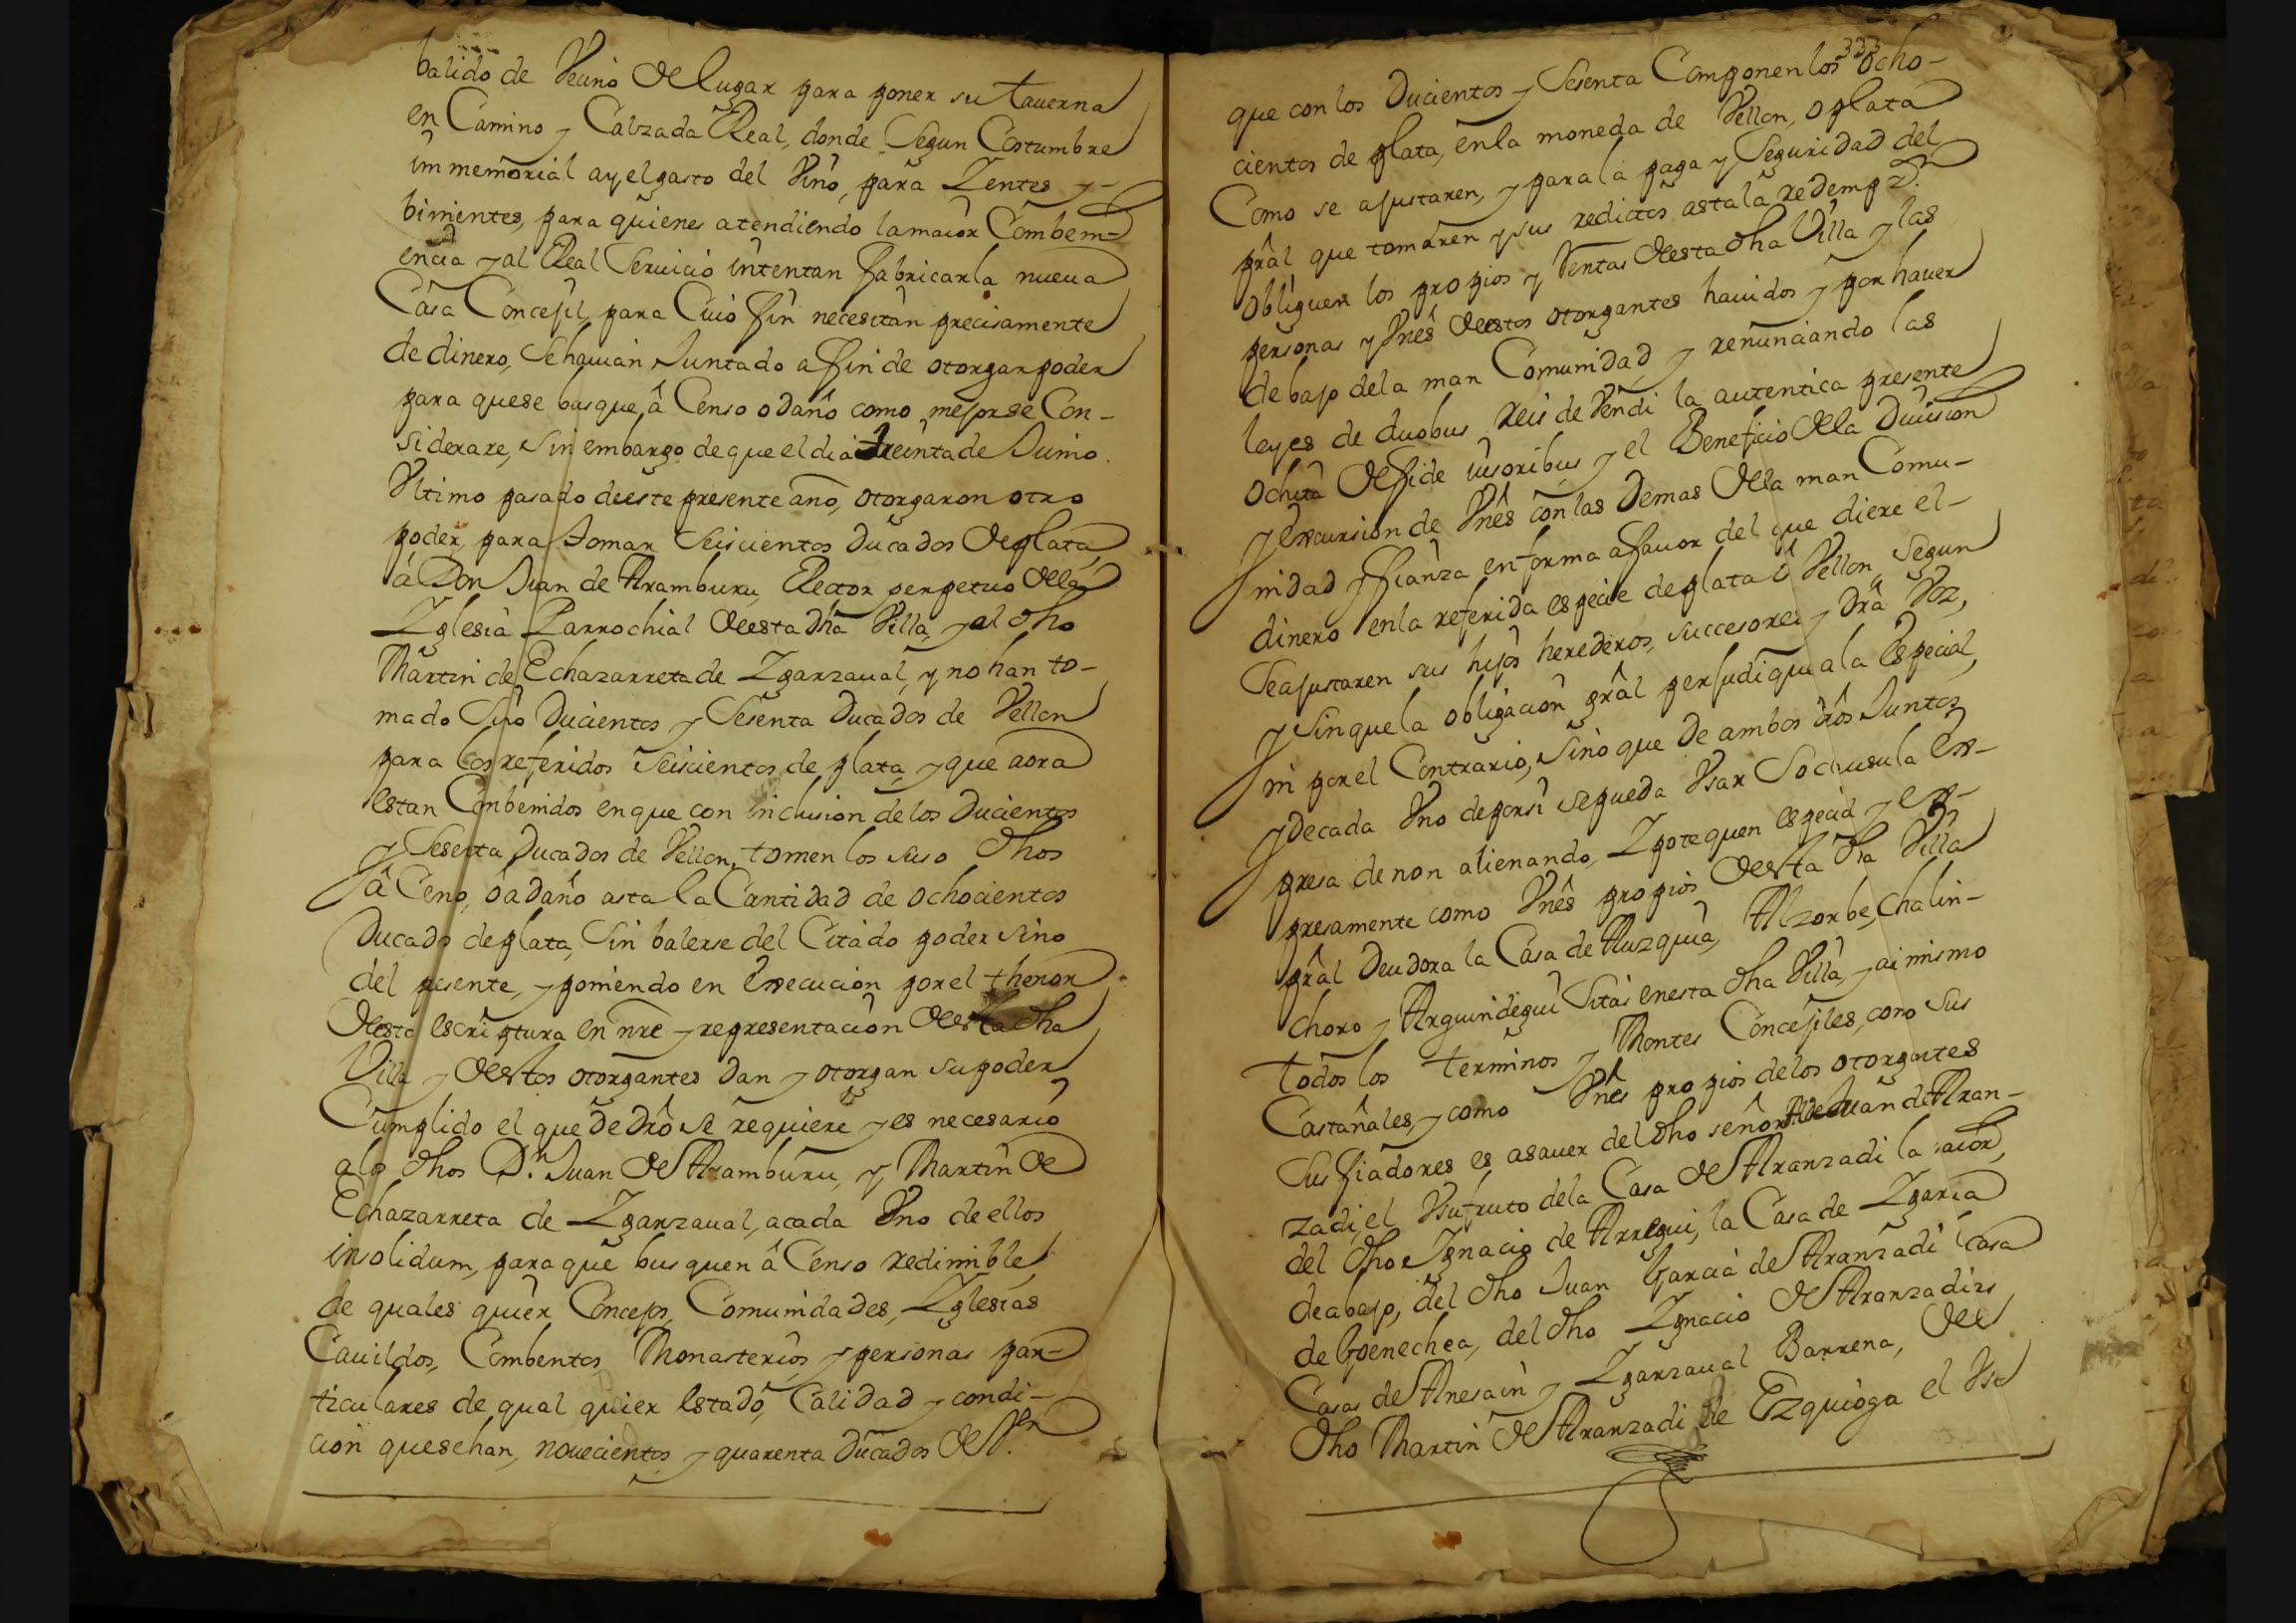 balido de Vecino del lugar para poner su taverna
en Camino y Calzada Real, donde Segun Costumbre
immemorial ay el gasto del Vino, para Zentes y
binientes, para quienes atendiendo la maior Combeni-
encia y al Real Servicio intentan fabricarla nueva
Casa Concejil, para Cuio fin necesitan precisamente
de dinero, Se havian Juntado a fin de otorgar poder
para que se busque, â Censo o daño como mejor se Con-
siderare, Sin embargo de que el dia treinta de Junio
Vltimo pasado de este presente año, otorgaron otro
poder, para tomar Seiscientos Ducados de plata
â Don Juan de Aramburu, Rector perpetuo de la
Yglesia Parrochial de esta dha Villa, y al dho
Martin de Echazarreta de Ygarzaual, y no han to-
mado Sino Ducientos y Sesenta Ducados de Vellon
para los referidos Seiscientos de plata, y que aora
estan Conbenidos en que con inclusion de los Ducientos
y Sesenta Ducados de Vellon, tomen los suso dhos
â Ceno, ô a daño asta la Cantidad de ochocientos
Ducados de plata, Sin balerse del Citado poder sino
del presente, y poniendo en Execucion por el thenor
de esta escriptura en nre y representacion de esta dha
Villa y de estos otorgantes dan y otorgan su poder
Cumplido el que de drô se requiere y es necesario
a los dhos Dn. Juan de Aramburu, y Martin de
Echazarreta de Ygarzaual, a cada Vno de ellos
insolidum, para que busquen â Censo redimible,
de quales quier Concejos, Comunidades, Yglesias
Cauildos, Combentos, Monasterios, y personas par-
ticulares de qual quier estado, Calidad y condi-
cion que sehan, novecientos y quarenta Ducados de Vn.
333
que con los Ducientos y Sesenta Componen los ocho-
cientos de plata, en la moneda de Vellon, o plata
Como se ajustaren, y para la paga y Seguridad del
prâl que tomâren y sus reditos asta la redempon.
obliguen los propios y Rentas de esta dha Villa y las
personas y Vnês de estos otorgantes havidos y por haver
debajo de la man Comunidad y renunciando las
leyes de duobus reis de Vendi la autentica presente
ochita de fide iusoribus, y el Beneficio de la Division
y Excursion de Vnês con las Demas de la man Comu-
nidad y fianza en forma a favor del que diere el
dinero en la referida especie de plata ô Vellon, Segun
Se ajustaren sus hijos herederos, successores y Drâ Voz,
y Sin que la obligacion grâl perjudique a la Especial,
ni por el Contrario, Sino que de ambos drôs Juntos
y de cada Vno de por si se pueda Vsar So clusula Ex-
presa de non alienando, Ypotequen especial y ex-
presamente como Vnês propios de esta dha Villa
prâl Deudora la Casa de Auzquia, Alzorbe, Chalin-
choro y Arguindegui Sitas en esta dha Villa, y asi mismo
todos los terminos y Montes Concejiles, como sus
Castañales, y como Vnês propios de los otorgantes
Sus fiadores es asaver del dho señor Alde Juan de Aran-
zadi, el Vsufruto de la Casa de Aranzadi la maior,
del dho Ygnacio de Arregui, la Casa de Ygaria
de abajo, del dho Juan Garcia de Aranzadi casa
de Goenechea, del dho Ygnacio de Aranzadi,
Casas de Anesain y Ygarzaual Barrena, del
dho Martin de Aranzadi de Ezquioga el Vsu